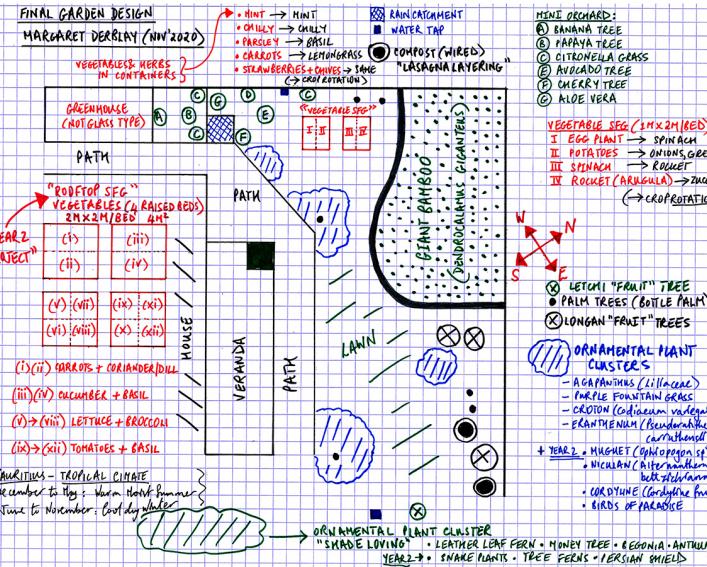 FINAL GARDEN DESIGN
MARGARET DERBLAY (NOV'2020)
VEGETABLES & HERBS
IN CONTAINERS
• MINT → MINT
• CHILLY → CHILLY
• PARSLEY → BASIL
• CARROTS → LEMONGRASS
• STRAWBERRIES + CHIVES → SAME
(→ CROP ROTATION)
RAIN CATCHMENT
WATER TAP
COMPOST (WIRED)
"LASAGNA LAYERING"
MINI ORCHARD:
A BANANA TREE
B PAPAYA TREE
C CITRONELLA GRASS
E AVOCADO TREE
F CHERRY TREE
G ALOE VERA
VEGETABLE SFG (1M×2M/BED)
I EGG PLANT → SPINACH
II POTATOES → ONIONS, GRE
III SPINACH → ROCKET
IV ROCKET (ARUGULA) → ZUC
(→ CROP ROTATION
GREENHOUSE
(NOT GLASS TYPE)
A B C C G D E F C
"VEGETABLE SFG"
I II III IV
PATH
PATH
GIANT BAMBOO
(DENDROCALAMUS GIGANTEUS)
"ROOFTOP SFG"
VEGETABLES (4 RAISED BEDS)
2M×2M/BED 4M²
YEAR 2
(i) (iii)
(ii) (iv)
(v) (vii) (ix) (xi)
(vi) (viii) (x) (xii)
HOUSE
VERANDA
PATH
LAWN
W N
S E
LETCHI "FRUIT" TREE
PALM TREES (BOTTLE PALM
LONGAN "FRUIT" TREES
ORNAMENTAL PLANT
CLUSTERS
– AGAPANTHUS (Liliaceae)
– PURPLE FOUNTAIN GRASS
– CROTON (Codiaeum variega
– ERANTHEMUM
+ YEAR 2 • MUGUET (Ophiopogon
• CORDYLINE (Cordyline
• BIRDS OF PARADISE
(i)(ii) CARROTS + CORIANDER/DILL
(iii)(iv) CUCUMBER + BASIL
(v)→(viii) LETTUCE + BROCCOLI
(ix)→(xii) TOMATOES + BASIL
AURITIUS – TROPICAL CLIMATE
ecember to May: Warm Moist Summer
June to November: Cool dry Winter
ORNAMENTAL PLANT CLUSTER
"SHADE LOVING" • LEATHER LEAF FERN • MONEY TREE • BEGONIA • ANTHU
YEAR 2 → • SNAKE PLANTS • TREE FERNS • PERSIAN SHIELD